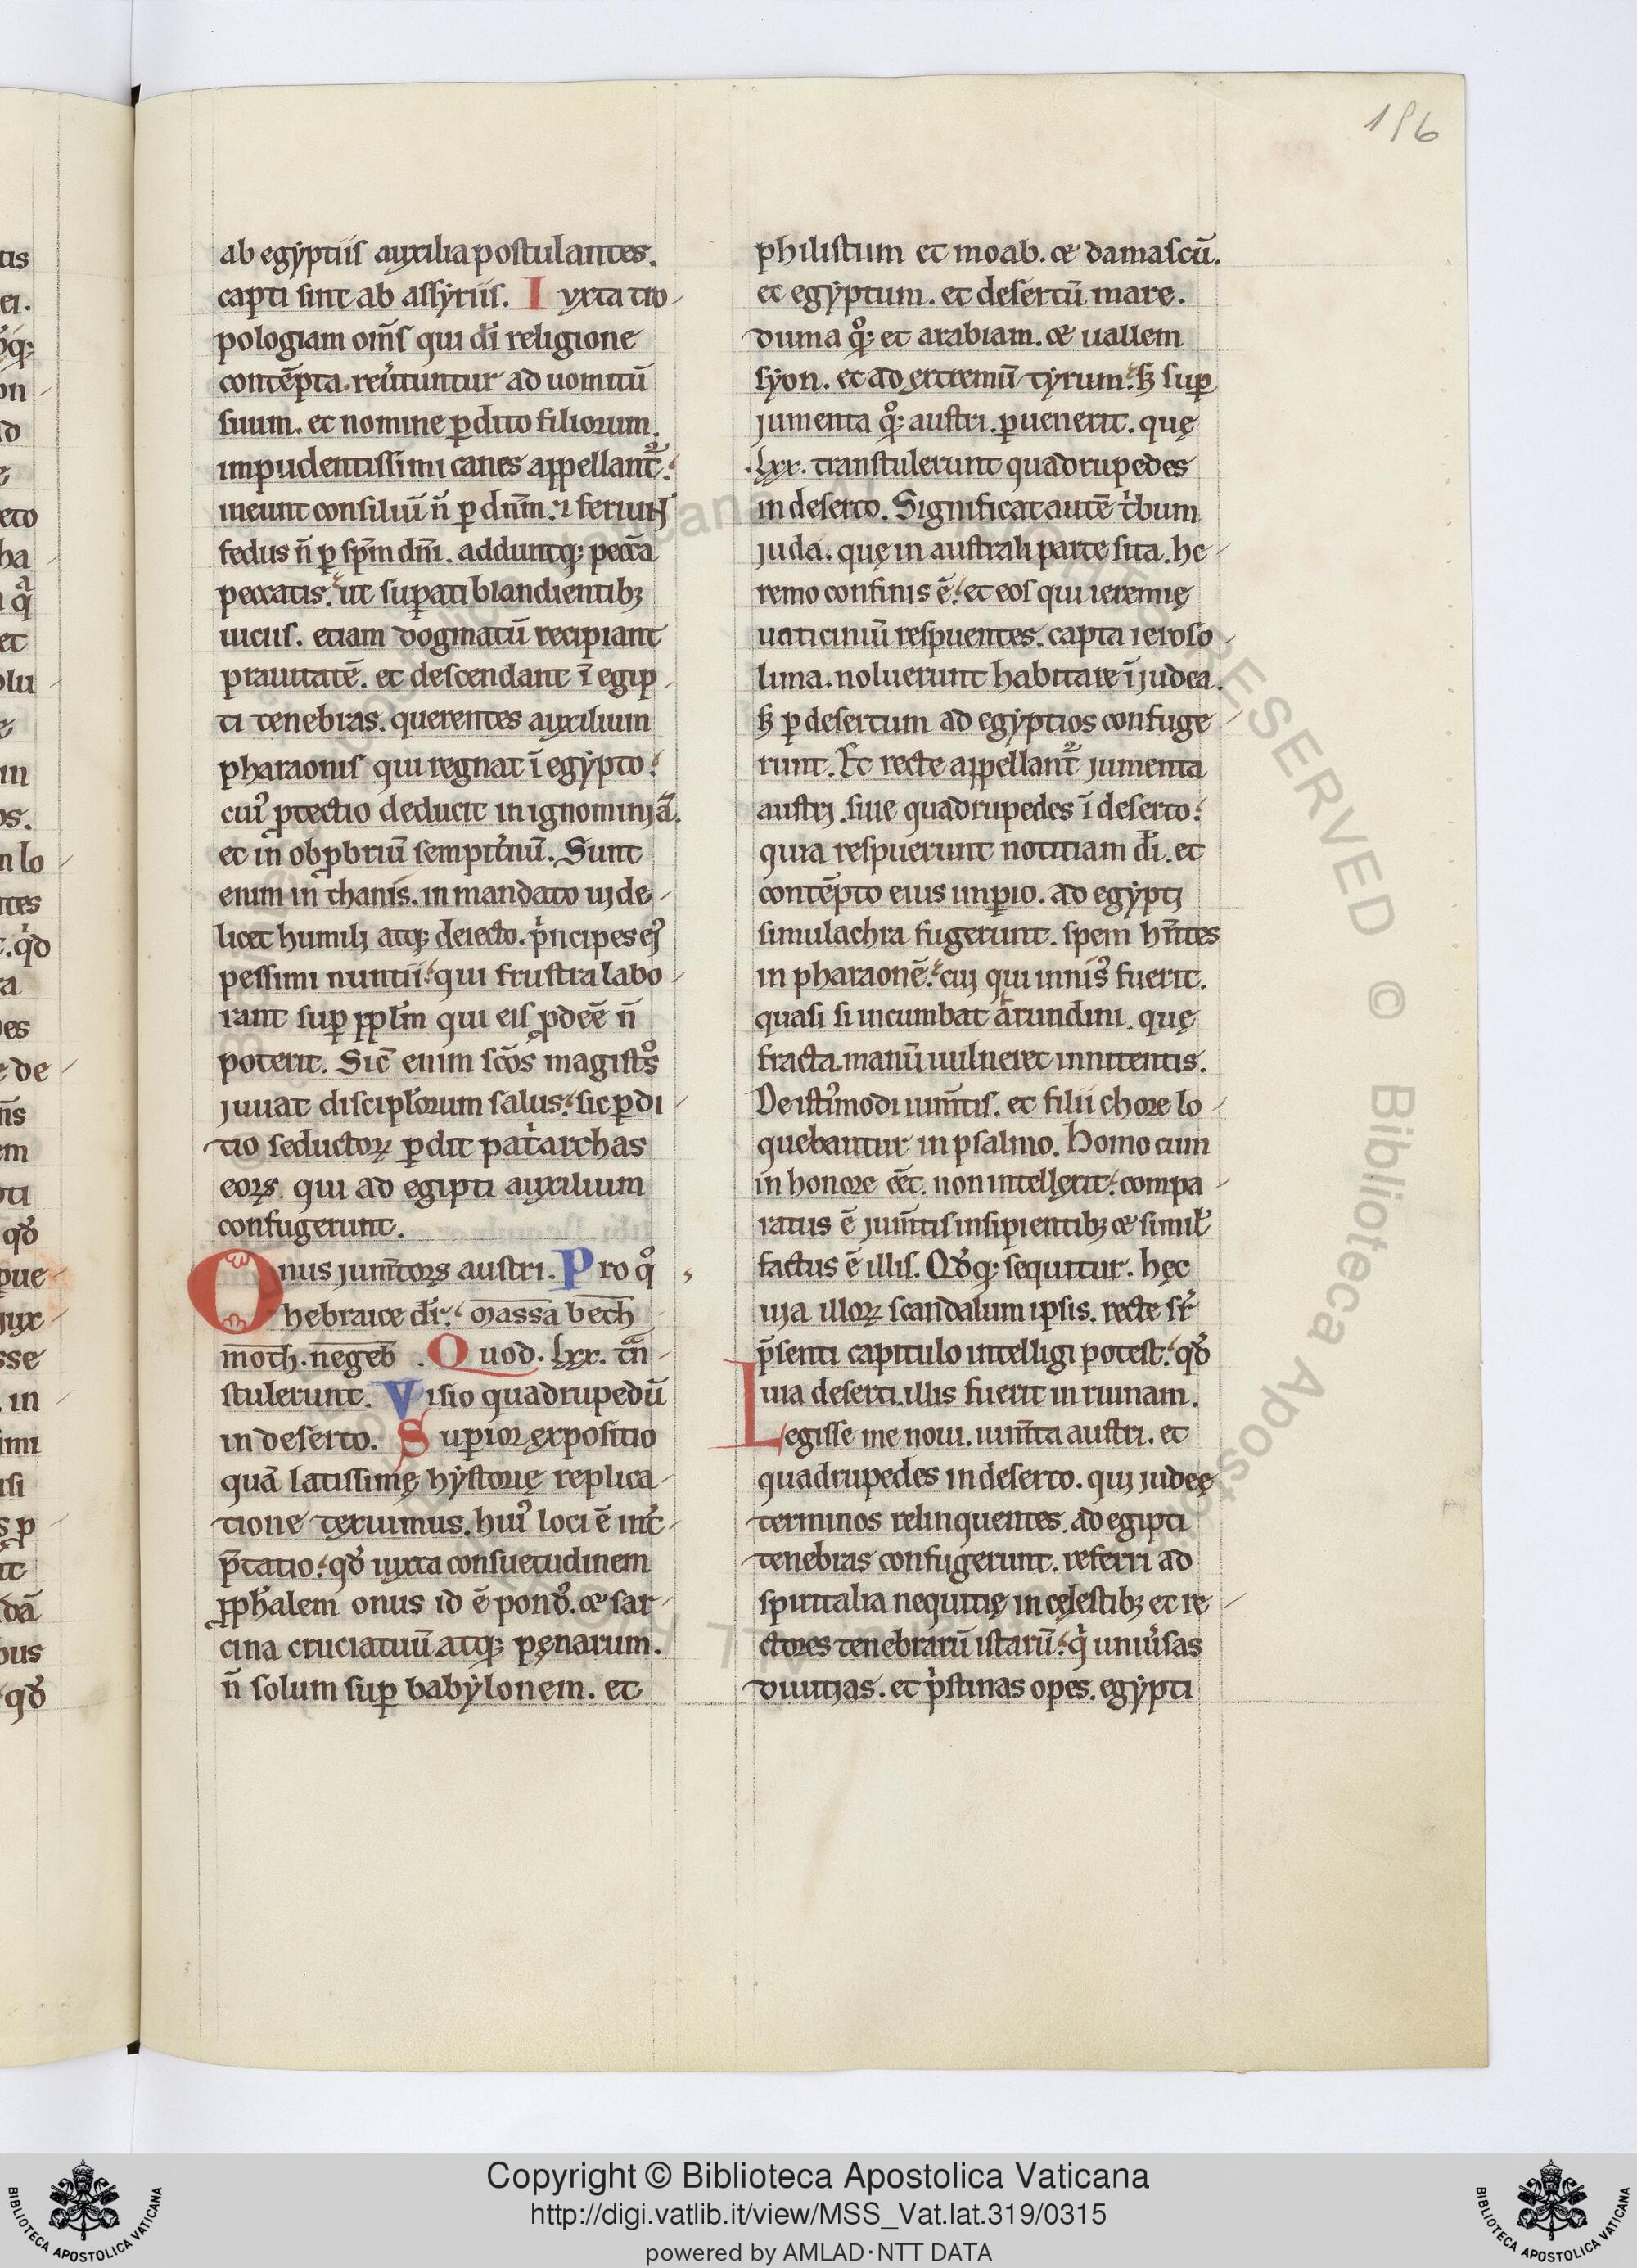 196
ab egyptiis auxilia postulantes.
capti sint ab assyriis. Iuxta tro-
pologiam om̄s qui dī religione
contēpta. reu͛tuntur ad uomitū
suum. et nomine ꝑdito filiorum.
impudentissimi canes appellant᷑.
ineunt consiliū n̄ ꝑ dn̄m. ⁊ feriunt
fedus n̄ ꝑ sp̄m dn̄i. adduntq; pecc̄a
peccatis. ut suꝑati blandientibꝫ
uiciis. etiam dogmatū recipiant
prauitatē. et descendant ī egip-
ti tenebras. querentes auxilium
pharaonis qui regnat ī egypto.
cui᷒ ꝓtectio deducit in ignominiā.
et in obꝓbriū sempit͛nū. Sunt
enim in thanis. in mandato uide-
licet humili atq; deiecto. pͥncipes ei᷒
pessimi nuntii. qui frustra labo-
rant suꝑ ppl̄m qui eis ꝓdeē n̄
poterit. Sic̄ enim sc̄os magistͦs
juuat discipl̓orum salus. sic ꝑdi-
tio seductoꝝ ꝑdit patͥarchas
eoꝝ. qui ad egipti auxilium
confugerunt.
Onus jum̄toꝝ austri. Pro qͦ
hebraice dr̄. massa bech
moth. negeb. Quod. lxx. tͣn
stulerunt. Visio quadrupedū
in deserto. Suꝑior expositio
quā latissimę hystorię replica-
tione texuimus. hui᷒ loci ē int͛-
p̄tatio. qd̓ iuxta consuetudinem
ꝓph̓alem onus id ē pond᷒. ⁊ sar-
cina cruciatuū atq; pęnarum.
n̄ solum suꝑ babylonem. et
philistum et moab. ⁊ damascū.
et egyptum. et desertū mare.
duma qͦ; et arabiam. ⁊ uallem
syon. et ad extremū tyrum. sꝫ suꝑ
jumenta qͦ; austri. ꝑuenerit. quę
.lxx. transtulerunt quadrupedes
in deserto. Significat autē tͥbum
juda. quę in australi parte sita. he-
remo confinis ē. et eos qui ieremię
uaticiniū respuentes. capta ieroso-
lima. noluerunt habitare ī judea.
sꝫ ꝑ desertum ad egyptios confuge-
runt. Et recte appellant᷑ jumenta
austri. siue quadrupedes ī deserto.
quia respuerunt notitiam dī. et
contēpto eius imꝑio. ad egypti
simulachra fugerunt. spem hn̄tes
in pharaonē. cui qui innis᷒ fuerit.
quasi si incumbat arundini. quę
fracta. manū uulneret innitentis.
De isti᷒modi ium̄tis. et filii chore lo-
quebantur in psalmo. Homo cum
in honore eēt. non intellęxit. compa-
ratus ē jum̄tis insipientibꝫ ⁊ simil̓
factus ē illis. Qd̓q; sequitur. hęc
uia illoꝝ scandalum ipsis. recte st͛
p̄senti capitulo intelligi potest. qd̓
uia deserti. illis fuerit in ruinam.
Legisse me noui. ium̄ta austri. et
quadrupedes in deserto. qui judeę
terminos relinquentes. ad egipti
tenebras confugerunt. referri ad
spiritalia nequitię in cęlestibꝫ et re-
ctores tenebrarū istarū. qͥ uniu͛sas
diuitias. et pͥstinas opes. egypti
Copyright © Biblioteca Apostolica Vaticana
http://digi.vatlib.it/view/MSS_Vat.lat.319/0315
powered by AMLAD·NTT DATA
BIBLIOTECA APOSTOLICA VATICANA
BIBLIOTECA APOSTOLICA VATICANA